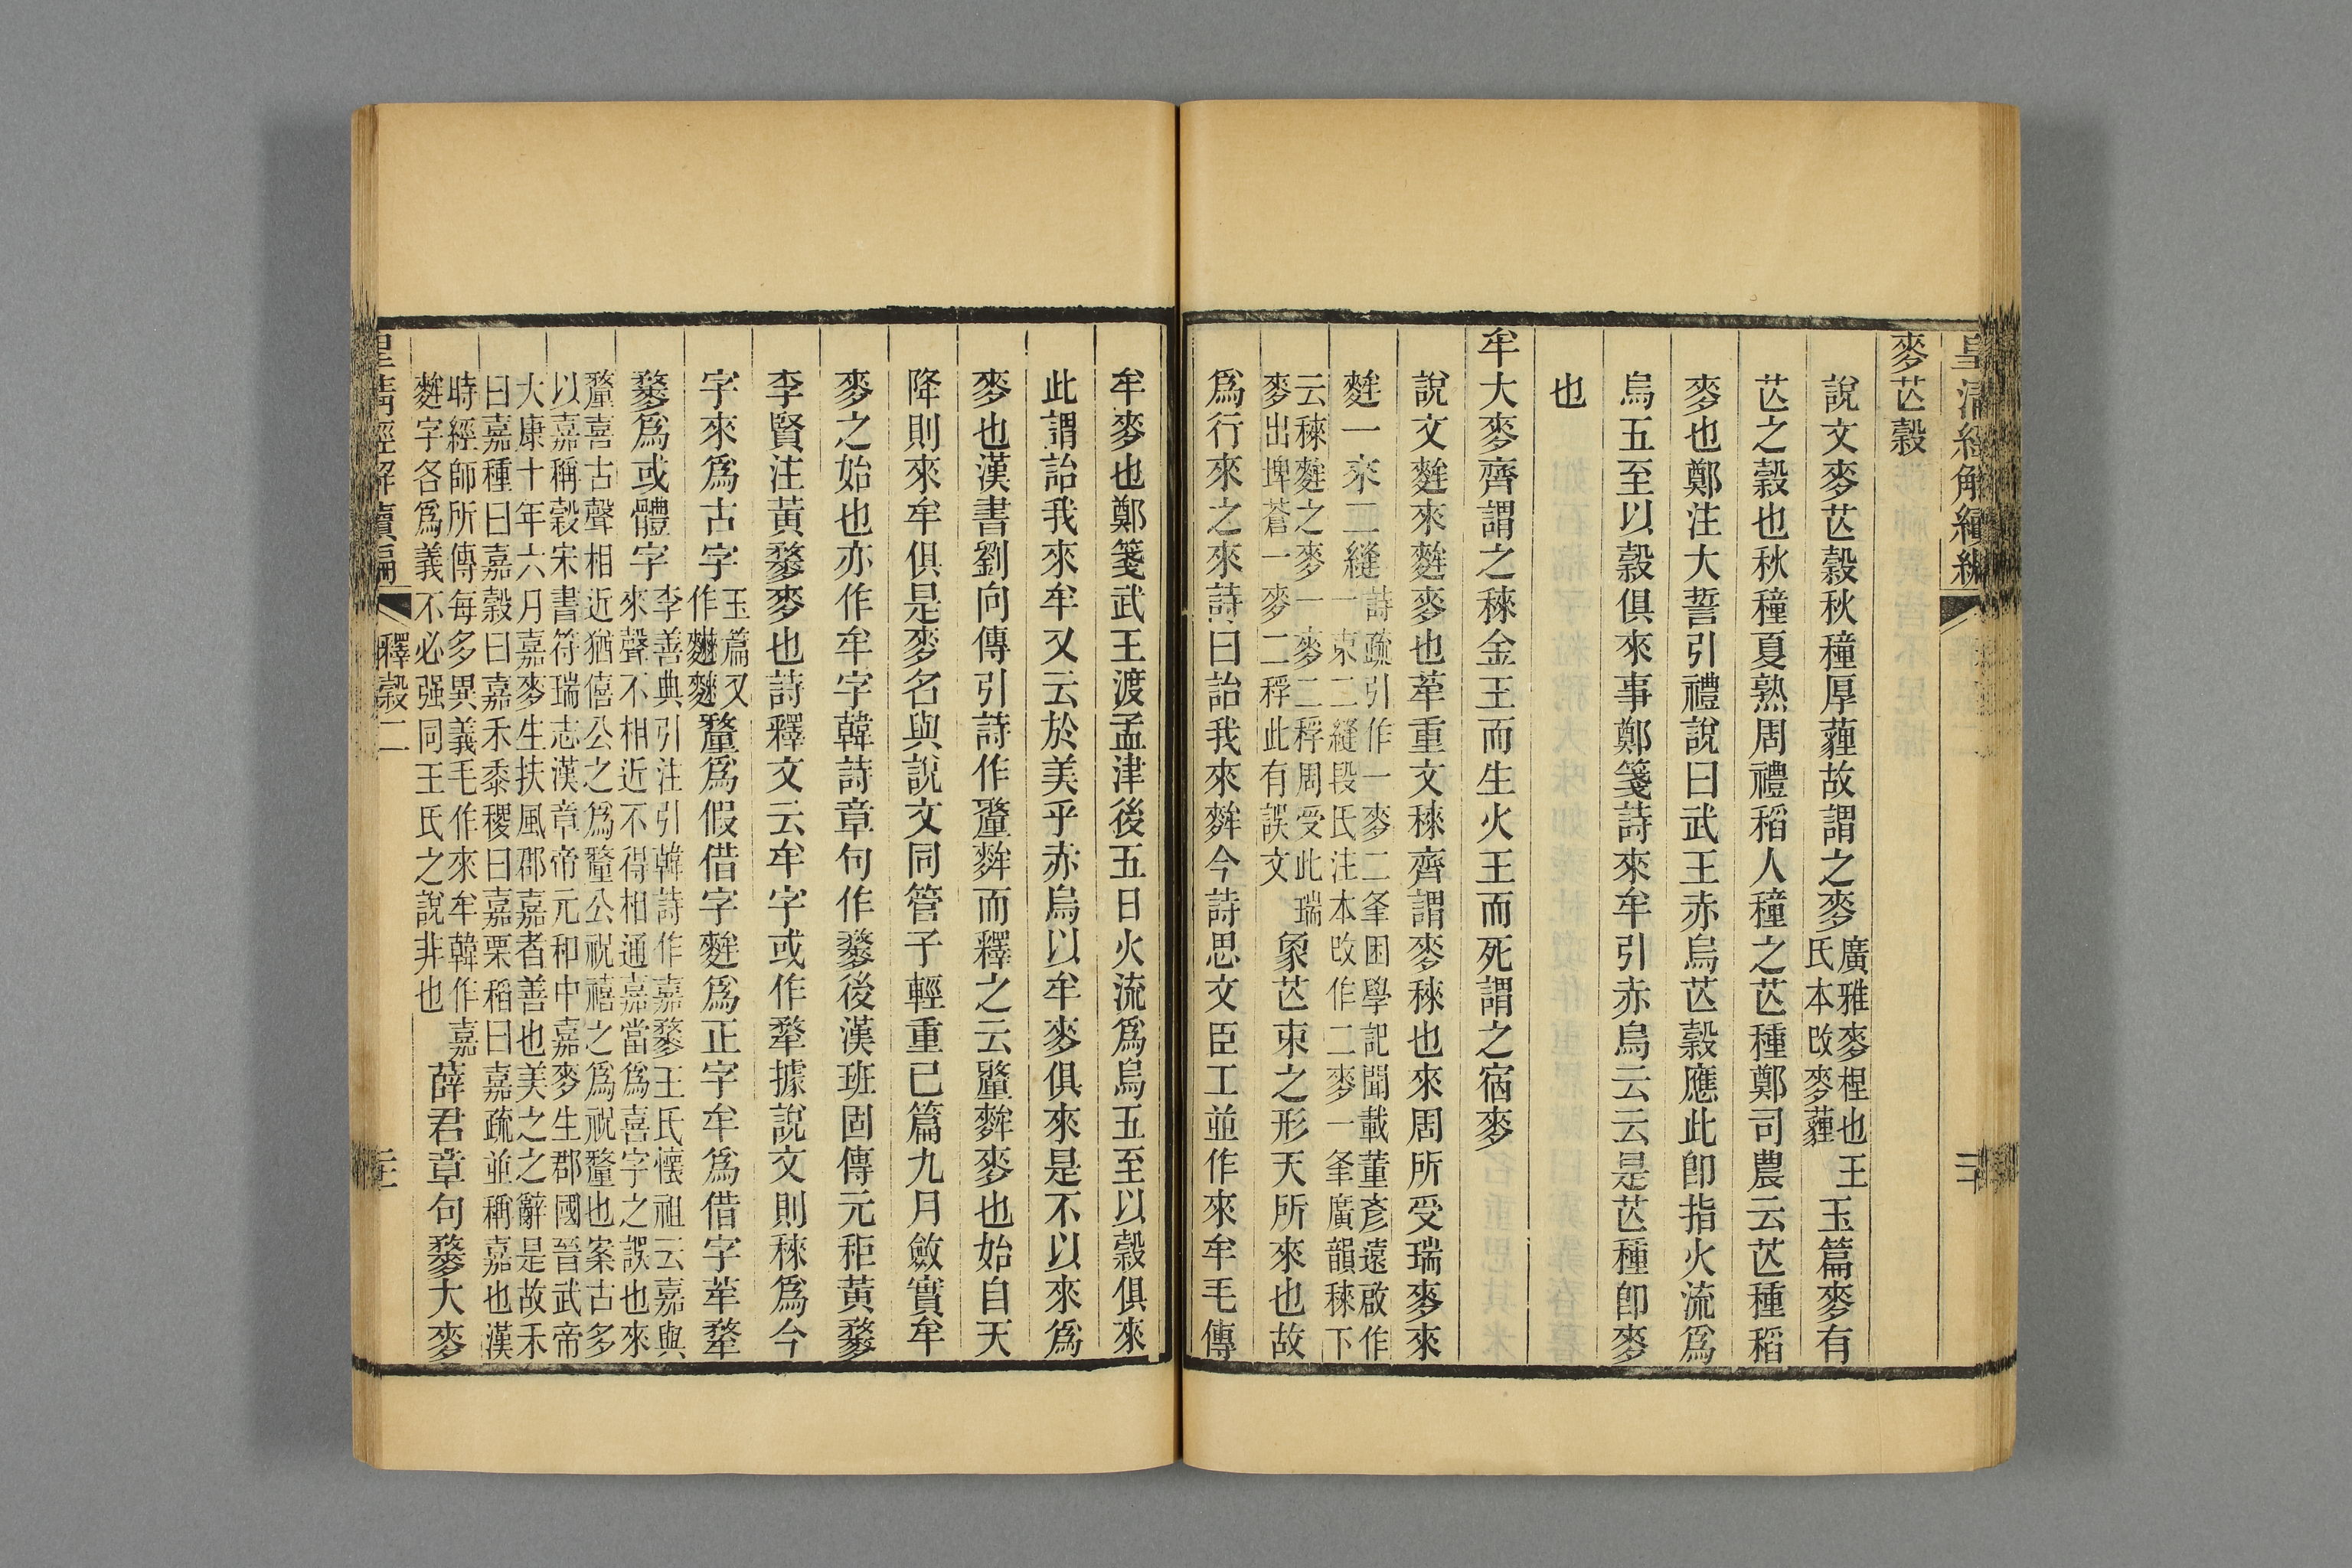 皇清經解續編
麥芒穀
說文麥芒穀秋穜厚薶故謂之麥廣雅麥桯也王氏本改麥薶玉篇麥有
芒之穀也秋穜夏熟周禮稻人穜之芒種鄭司農云芒種稻
麥也鄭注大誓引禮說曰武王赤烏芒穀應此卽指火流爲
烏五至以穀俱來事鄭箋詩來牟引赤烏云云是芒種卽麥
也
牟大麥齊謂之䅘金王而生火王而死謂之宿麥
說文麰來麰麥也䍒重文䅘齊謂麥䅘也來周所受瑞麥來
麰一來二縫詩疏引作一麥二夆困學記聞載董彥遠啟作一束二縫段氏注本改作二麥一夆廣韻䅘下
云䅘麰之麥一麥二稃周受此瑞麥出埤蒼一麥二稃此有誤文象芒朿之形天所來也故
爲行來之來詩曰詒我來麰今詩思文臣工並作來牟毛傳
牟麥也鄭箋武王渡孟津後五日火流爲烏五至以穀俱來
此謂詒我來牟又云於美乎赤烏以牟麥俱來是不以來爲
麥也漢書劉向傳引詩作釐麰而釋之云釐麰麥也始自天
降則來牟俱是麥名與說文同管子輕重己篇九月斂實牟
麥之始也亦作牟字韓詩章句作䵖後漢班固傳元秬黃䵖
李賢注黃䵖麥也詩釋文云牟字或作䵖據說文則䅘爲今
字來爲古字玉篇又作釐爲假借字麰爲正字牟爲借字䍒
䵖爲或體字李善典引注引韓詩作嘉䵖王氏懷祖云嘉與來聲不相近不得相通嘉當爲喜字之誤也來
釐喜古聲相近猶僖公之爲釐公祝禧之爲祝釐也案古多以嘉稱穀宋書符瑞志漢章帝元和中嘉麥生郡國晉武帝
大康十年六月嘉麥生扶風郡嘉者善也美之之辭是故禾曰嘉種曰嘉穀曰嘉禾黍稷曰嘉栗稻曰嘉疏並稱嘉也漢
時經師所傳每多異義毛作來牟韓作嘉麰字各爲義不必强同王氏之說非也薛君章句䵖大麥
皇清經解續編 釋穀二